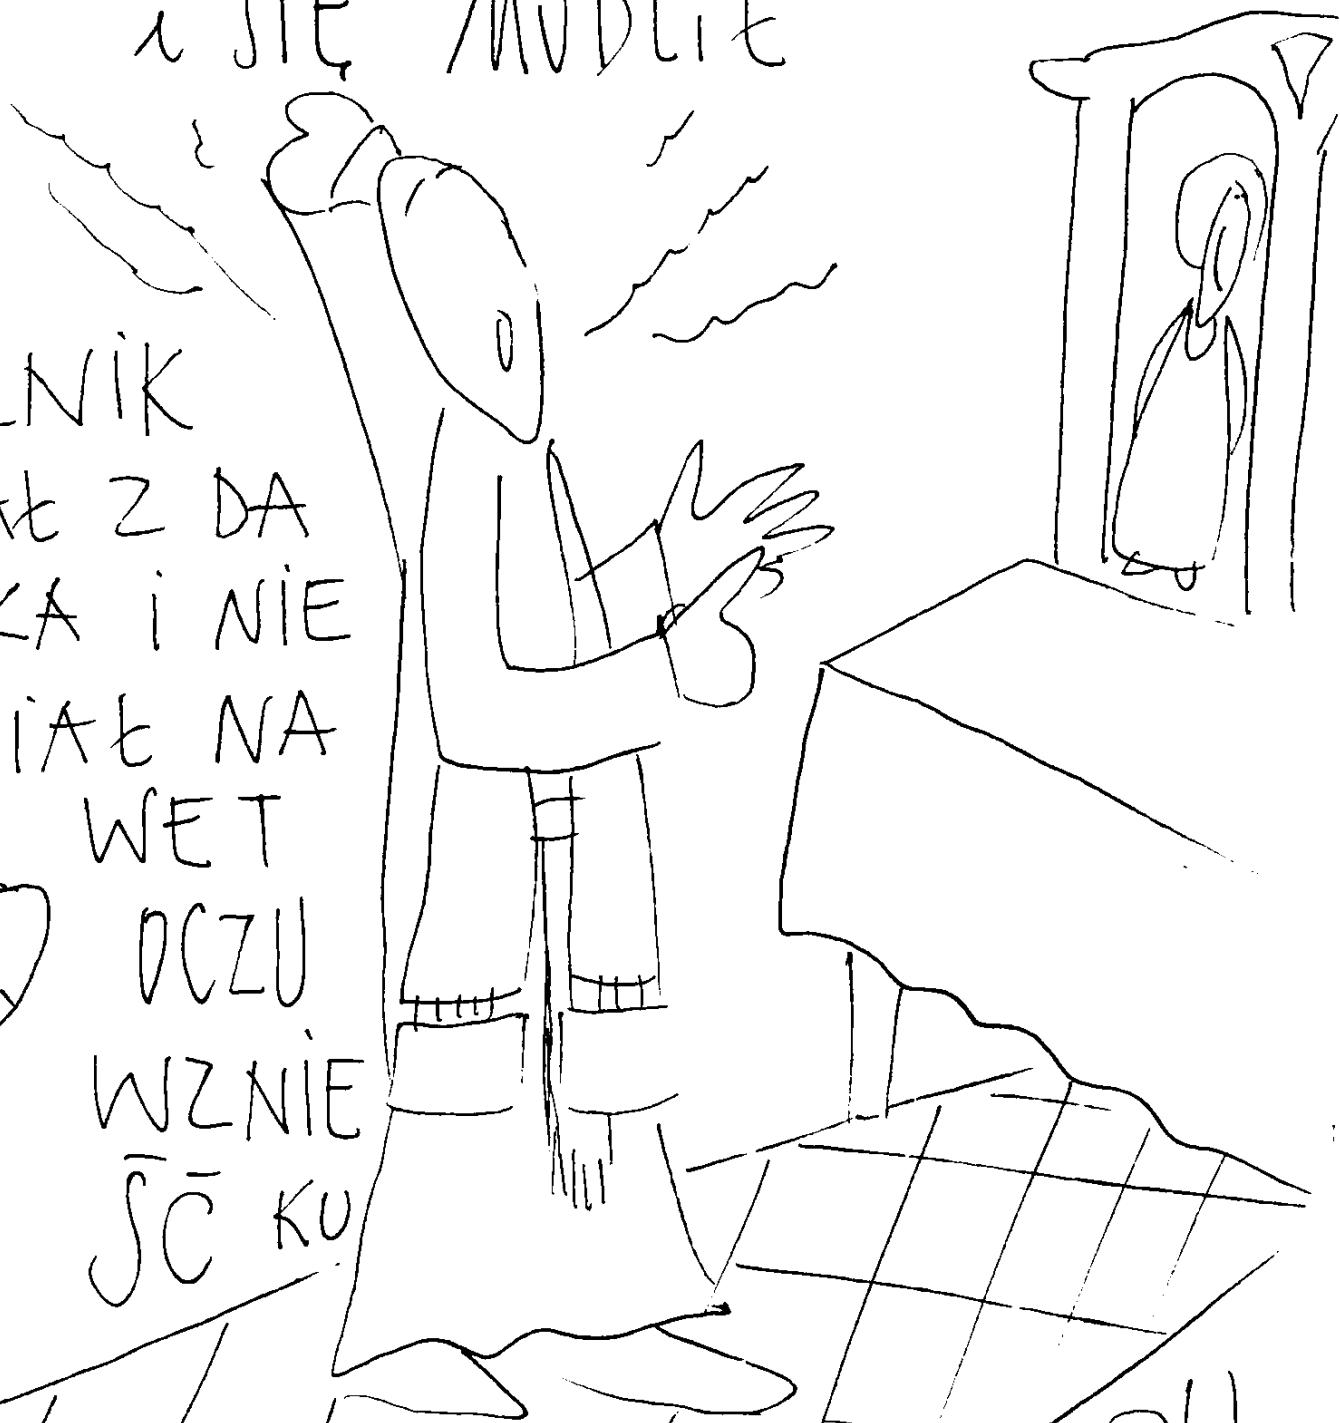 i SIĘ MODLIŁ
LNIK
AŁ Z DA
KA i NIE
iAŁ NA
WET
OCZU
WZNIE
ŚĆ KU